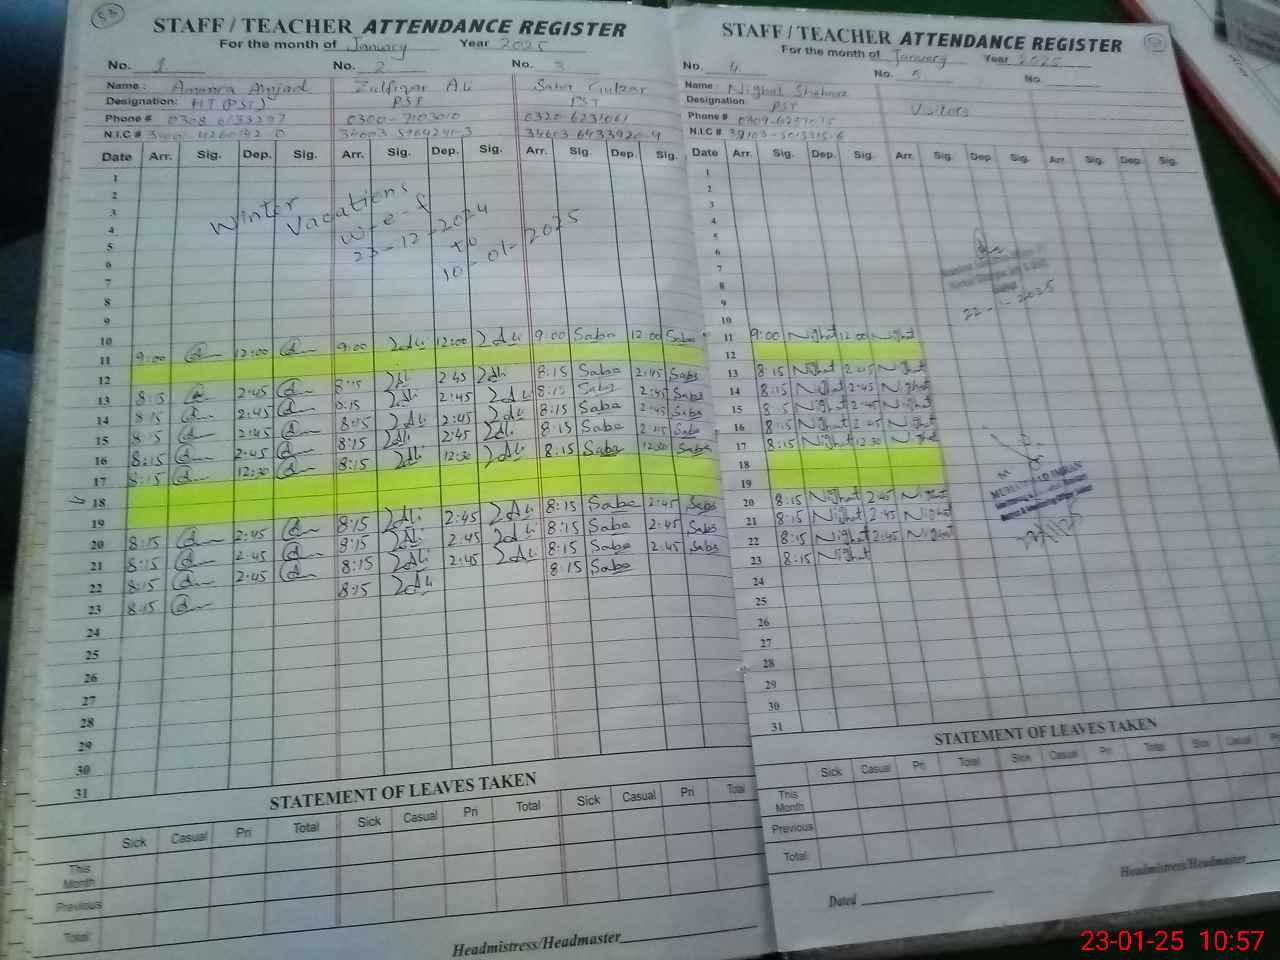 53
STAFF / TEACHER ATTENDANCE REGISTER
For the month of January Year 2025
No. 1 No. 2 No. 3
Name : Amanra Amjad Zulfiqar Ali Saba Gulzar
Designation: HT (PST) PST PST
Phone # 0300-7103010 0320 6231061
N.I.C #
Date Arr. Sig. Dep. Sig. Arr. Sig. Dep. Sig. Arr. Sig. Dep. Sig.
1
2
3
4
5
6
7
8
9
10
Winter Vacations
w-e-f
23-12-2024
to
10-01-2025
11 9:00 12:00 9:00 12:00 9:00 Saba 12:00 Saba
12
13 8:15 2:45 8:15 2:45 8:15 Saba 2:45 Saba
14 8:15 2:45 8:15 2:45 8:15 Saba 2:45 Saba
15 8:15 2:45 8:15 2:45 8:15 Saba 2:45 Saba
16 8:15 2:45 8:15 2:45 8:15 Saba 2:45 Saba
17 8:15 12:30 8:15 12:30 8:15 Saba 12:30 Saba
18
19
20 8:15 2:45 8:15 2:45 8:15 Saba 2:45 Saba
21 8:15 2:45 8:15 2:45 8:15 Saba 2:45 Saba
22 8:15 2:45 8:15 2:45 8:15 Saba 2:45 Saba
23 8:15 8:15 8:15 Saba
24
25
26
27
28
29
30
31
STATEMENT OF LEAVES TAKEN
Sick Casual Pri Total Sick Casual Pri Total Sick Casual Pri Total
This Month
Previous
Total:
Headmistress/Headmaster
STAFF / TEACHER ATTENDANCE REGISTER
For the month of January Year 2025
No. 4 No. 5 No.
Name: Nighat Shaheen
Designation PST Visitors
Phone #
N.I.C #
Date Arr. Sig. Dep. Sig. Arr. Sig. Dep Sig. Arr. Sig. Dep. Sig.
1
2
3
4
5
6
7
8
9
10
22-1-2025
11 9:00 Nighat 12:00 Nighat
12
13 8:15 Nighat 2:45 Nighat
14 8:15 Nighat 2:45 Nighat
15 8:15 Nighat 2:45 Nighat
16 8:15 Nighat 2:45 Nighat
17 8:15 Nighat 12:30 Nighat
18
19
MUHAMMAD IMRAN
20 8:15 Nighat 2:45 Nighat
21 8:15 Nighat 2:45 Nighat
22 8:15 Nighat 2:45 Nighat
23 8:15 Nighat
24
25
26
27
28
29
30
31
STATEMENT OF LEAVES TAKEN
Sick Casual Pri Total Sick Casual Pri
This Month
Previous
Total:
Headmistress/Headmaster
Dated
23-01-25 10:57